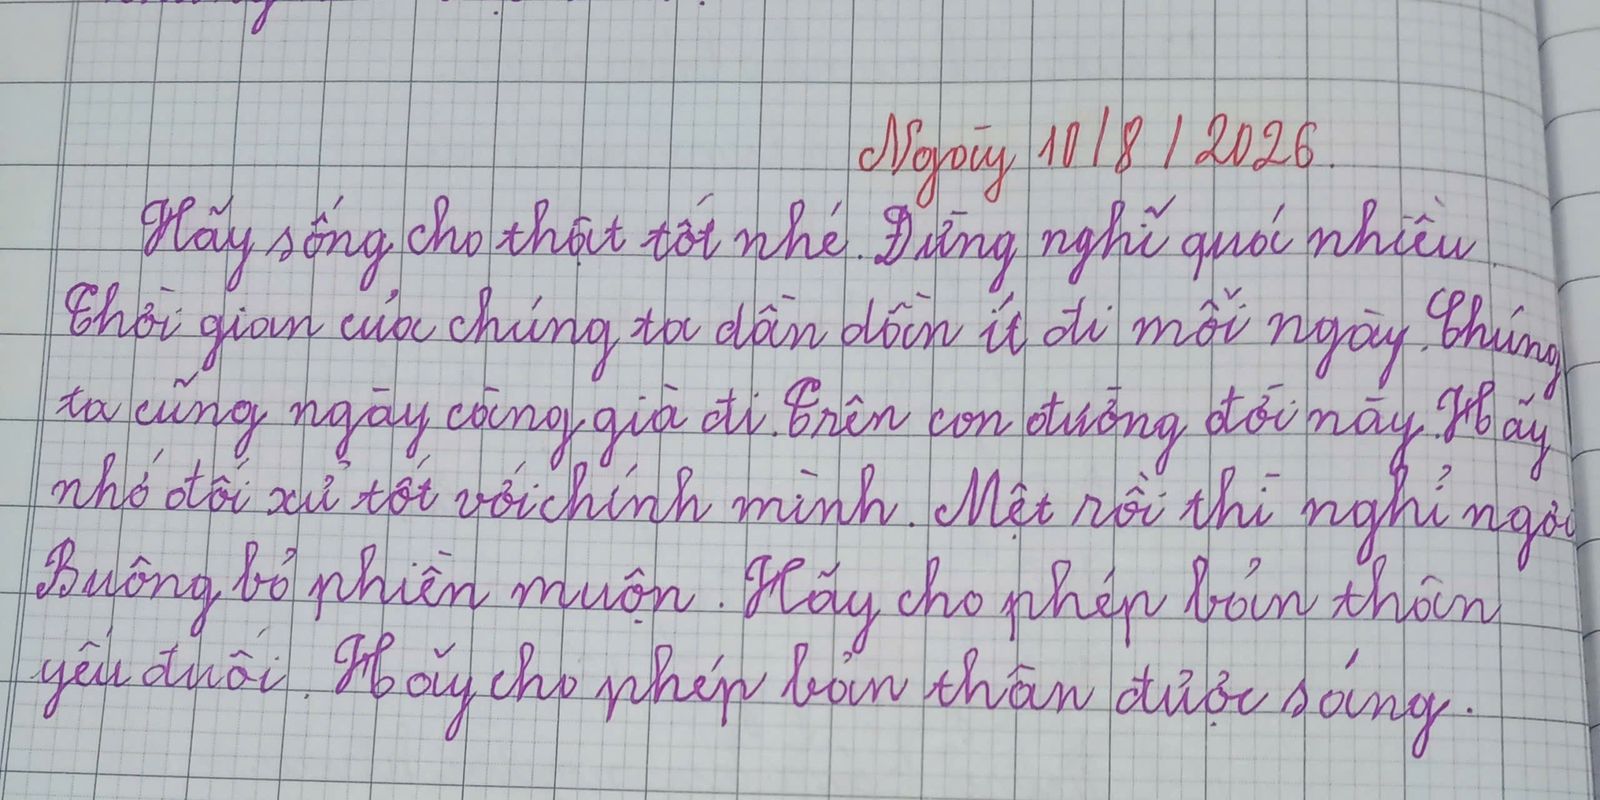 Ngày 10/8/2026.
Hãy sống cho thật tốt nhé. Đừng nghĩ quá nhiều.
Thời gian của chúng ta dần dần ít đi mỗi ngày. Chúng
ta cũng ngày càng già đi. Trên con đường đời này. Hãy
nhớ đối xử tốt với chính mình. Mệt rồi thì nghỉ ngơi
Buông bỏ phiền muộn. Hãy cho phép bản thân
yếu đuối. Hãy cho phép bản thân được sống.